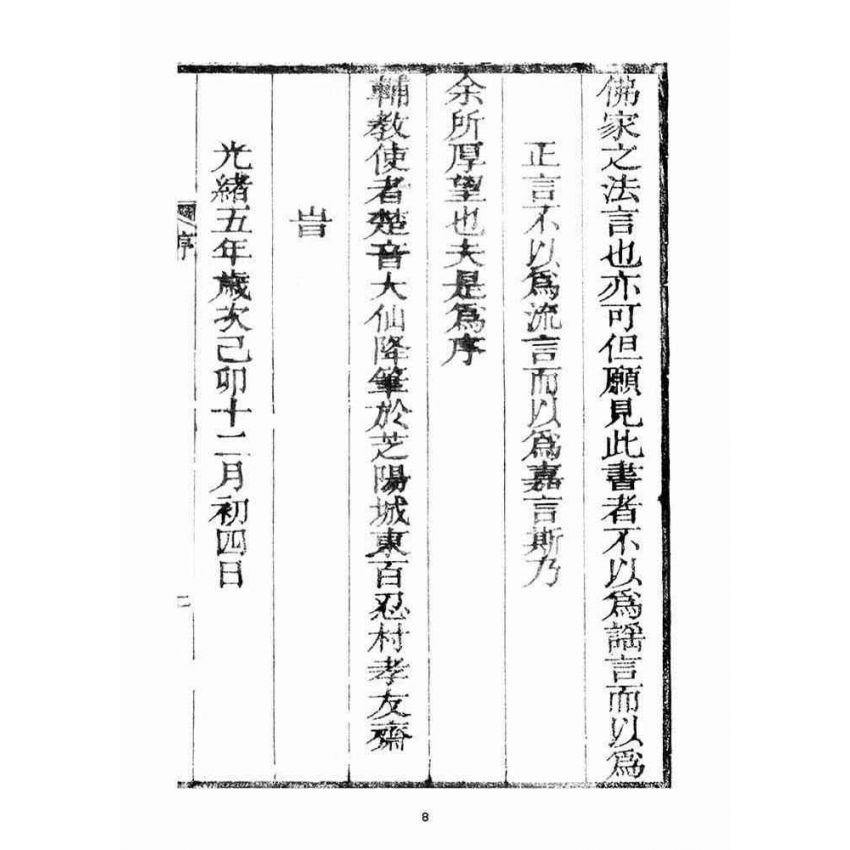 佛家之法言也亦可但願見此書者不以爲謡言而以爲
正言不以爲流言而以爲嘉言斯乃
余所厚望也夫是爲序
輔教使者楚音大仙降筆於芝陽城東百忍村孝友齋
旹
光緒五年歲次己卯十二月初四日
序
二
8